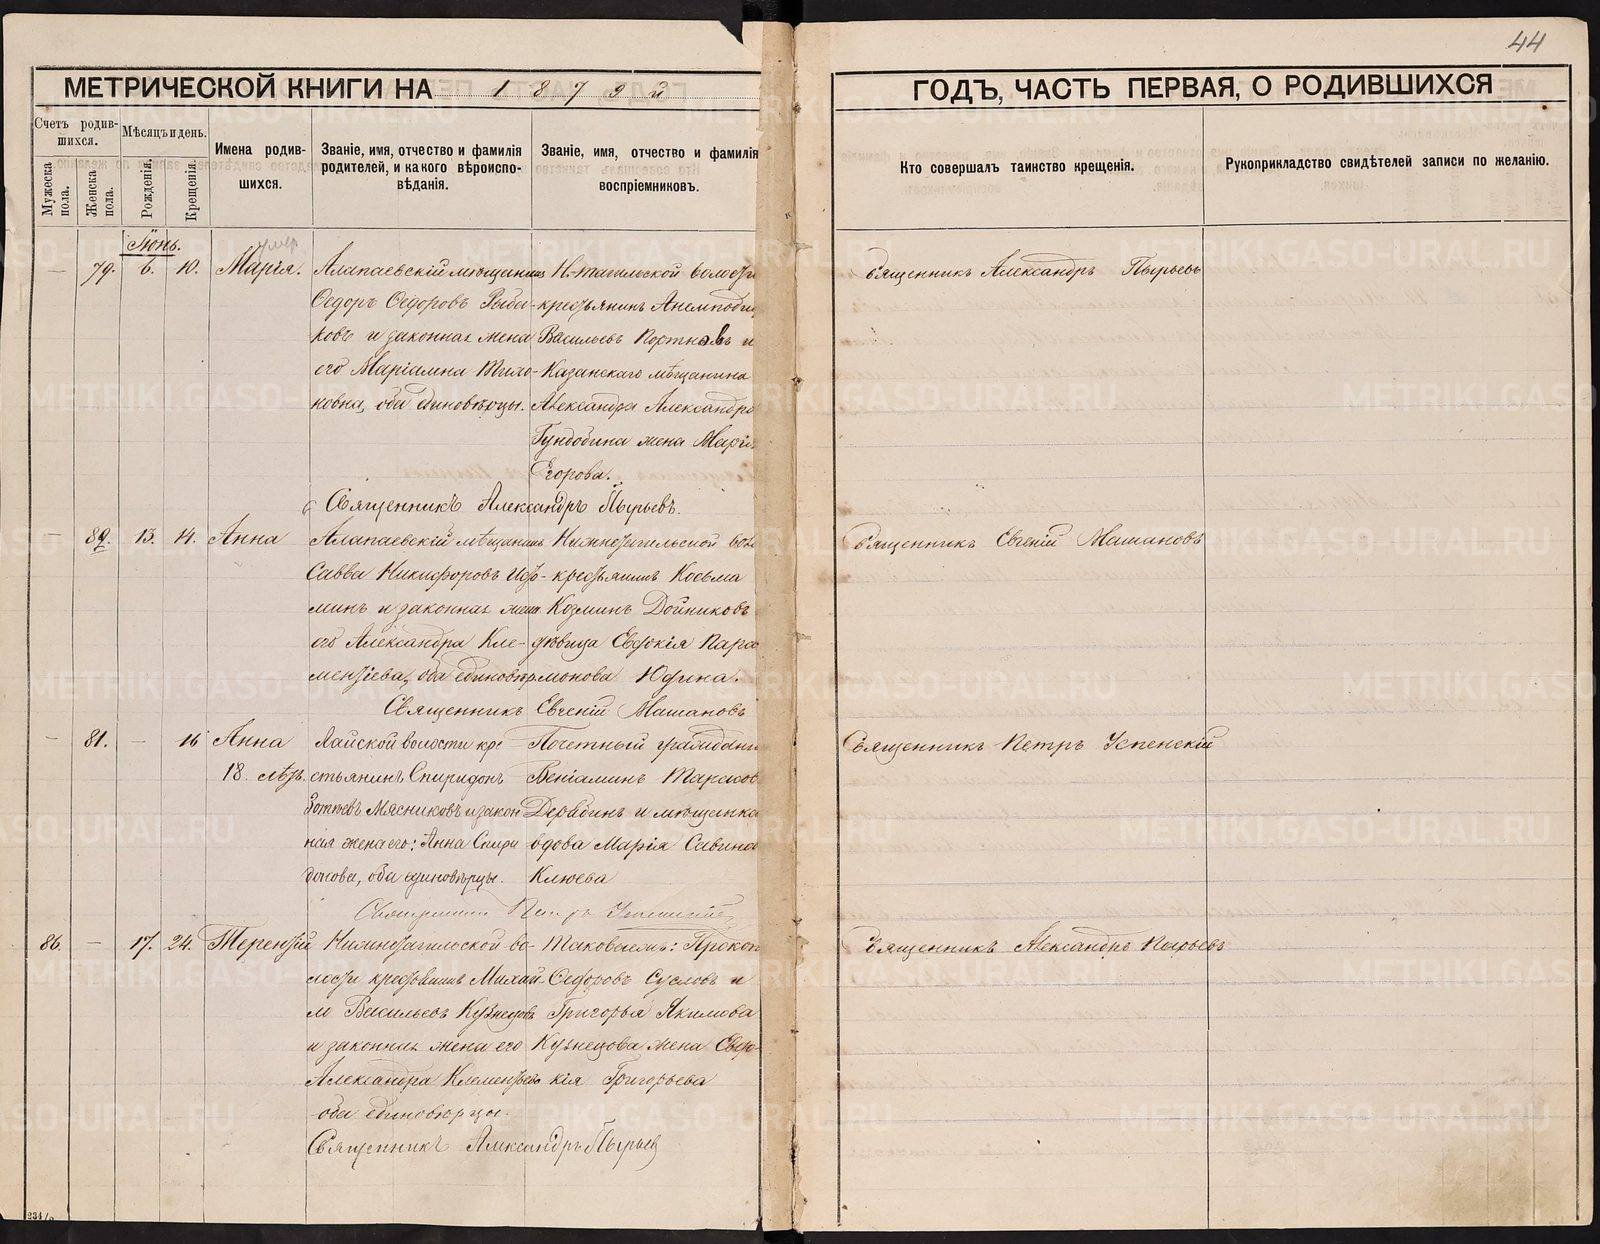 44
МЕТРИЧЕСКОЙ КНИГИ НА 1879й
ГОДЪ, ЧАСТЬ ПЕРВАЯ, О РОДИВШИХСЯ
Счетъ родившихся.
Мѣсяцъ и день.
Мужеска пола.
Женска пола.
Рожденія.
Крещенія.
Имена родившихся.
Званіе, имя, отчество и фамилія родителей, и какого вѣроисповѣданія.
Званіе, имя, отчество и фамилія воспріемниковъ.
Кто совершалъ таинство крещенія.
Рукоприкладство свидѣтелей записи по желанію.
Іюнь.
умер
— 79. 6. 10. Марія.
Алапаевскій мѣщанинъ
Ѳедоръ Ѳедоровъ Рыба-
ковъ и законная жена
его Маріамна Тимо-
новна, оба единовѣрцы.
Н.-тагильской волости
крестьянинъ Анемподи
Васильевъ Портновъ и
Казанскаго мѣщанина
Александра Александро
Гундобина жена Марія
Егорова.
Священникъ Александръ Пырьевъ
Священникъ Александръ Пырьевъ.
— 80. 13. 14. Анна
Алапаевскій мѣщанинъ
Савва Никифоровъ Изо-
минъ и законная жена
его Александра Кле-
ментіева, оба единовѣр
Нижнетагильской вол
крестьянинъ Косьма
Козминъ Дойниковъ
дѣвица Евдокія Пара
монова Юдина.
Священникъ Евгеній Машановъ
Священникъ Евгеній Машановъ
— 81. — 16 Анна
18. лѣтъ.
Лайской волости кре
стьянинъ Спиридонъ
Мясниковъ и закон
ная жена его: Анна Спири
донова, оба единовѣрцы.
Почетный гражданин
Веніаминъ Тарасов
Дерябинъ и мѣщанка
вдова Марія Савинов
Клюева
Священникъ Петръ Успенскій
Священникъ Петръ Успенскій
86. — 17. 24. Терентій
Нижнетагильской во-
лости крестьянинъ Михаи-
лъ Васильевъ Кузнецовъ
и законная жена его
Александра Клементьева
оба единовѣрцы.
Таковаемъ: Прокоп
Ѳедоровъ Сусловъ и
Григорья Якимова
Кузнецова жена Евдо-
кія Григорьева
Священникъ Александръ Пырьевъ
Священникъ Александръ Пырьевъ
234/
METRIKI.GASO-URAL.RU